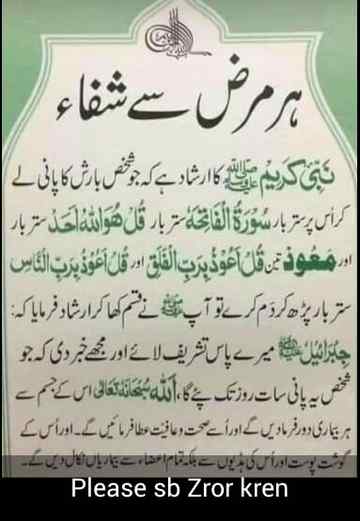 ہر مرض سے شفاء
نبی کریم ﷺ کا ارشاد ہے کہ جو شخص بارش کا پانی لے
کر اُس پر ستر بار سُوْرَۃُ الْفَاتِحَۃ ستر بار قُلْ هُوَ اللّٰهُ اَحَدٌ ستر بار
اور معوذ تین قُلْ اَعُوْذُ بِرَبِّ الْفَلَقِ اور قُلْ اَعُوْذُ بِرَبِّ النَّاسِ
ستر بار پڑھ کر دَم کرے تو آپ ﷺ نے قسم کھا کر ارشاد فرمایا کہ:
جبرائیل میرے پاس تشریف لائے اور مجھے خبر دی کہ جو
شخص یہ پانی سات روز تک پئے گا، اللّٰه سُبحَانَهٗ تَعَالٰی اس کے جسم سے
ہر بیماری دور فرمادیں گے اور اُسے صحت و عافیت عطا فرمائیں گے۔ اور اُس کے
گوشت پوست اور اُس کی ہڈیوں سے بلکہ تمام اعضاء سے بیماریاں نکال دیں گے۔
Please sb Zror kren